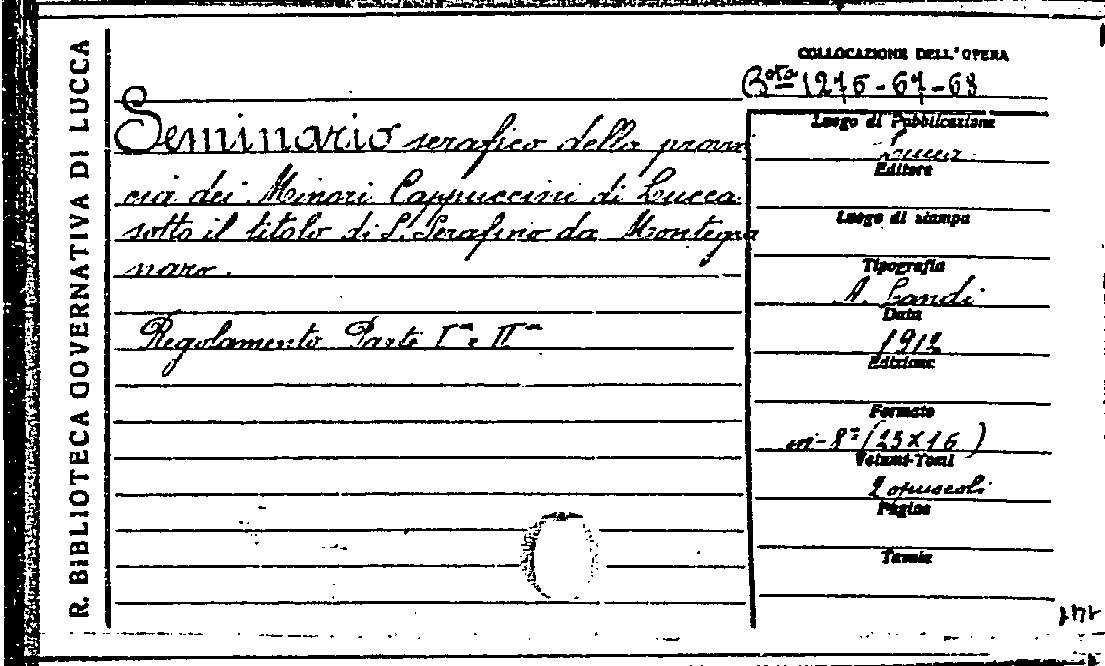 R. BIBLIOTECA GOVERNATIVA DI LUCCA
COLLOCAZIONE DELL'OPERA
Bᵒᵗᵃ 1276-67-68
Seminario serafico della provin
cia dei Minori Cappuccini di Lucca
sotto il titolo di S. Serafino da Montegra
naro.
Regolamento Parte Iᵃ e IIᵃ
Luogo di Pubblicazione
Lucca
Editore
Luogo di stampa
Tipografia
A. Landi
Data
1912
Edizione
Formato
in-8° (23 X 16)
Volumi-Tomi
2 opuscoli
Pagine
Tavole